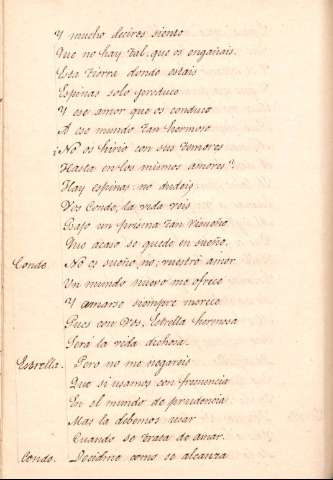 Y mucho deciros siento
Que no hay tal, que os engañais.
Esta tierra donde estais
Espinas solo produce
Y ese amor que os conduce
A ese mundo tan hermoso
¿No os hirio con sus temores
Hasta en los mismos amores?
Hay espinas no dudeis
Vos Conde, la vida veis
Bajo un prisma tan risueño
Que acaso se quede en sueño.
Conde No es sueño, no; vuestro amor
Un mundo nuevo me ofrece
Y amarse siempre merece
Pues con Vos, Estrella hermosa
Será la vida dichosa.
Estrella. Pero no me negareis
Que si usamos con frecuencia
En el mundo de prudencia
Mas la debemos usar
Cuando se trata de amar.
Conde. Decidme como se alcanza